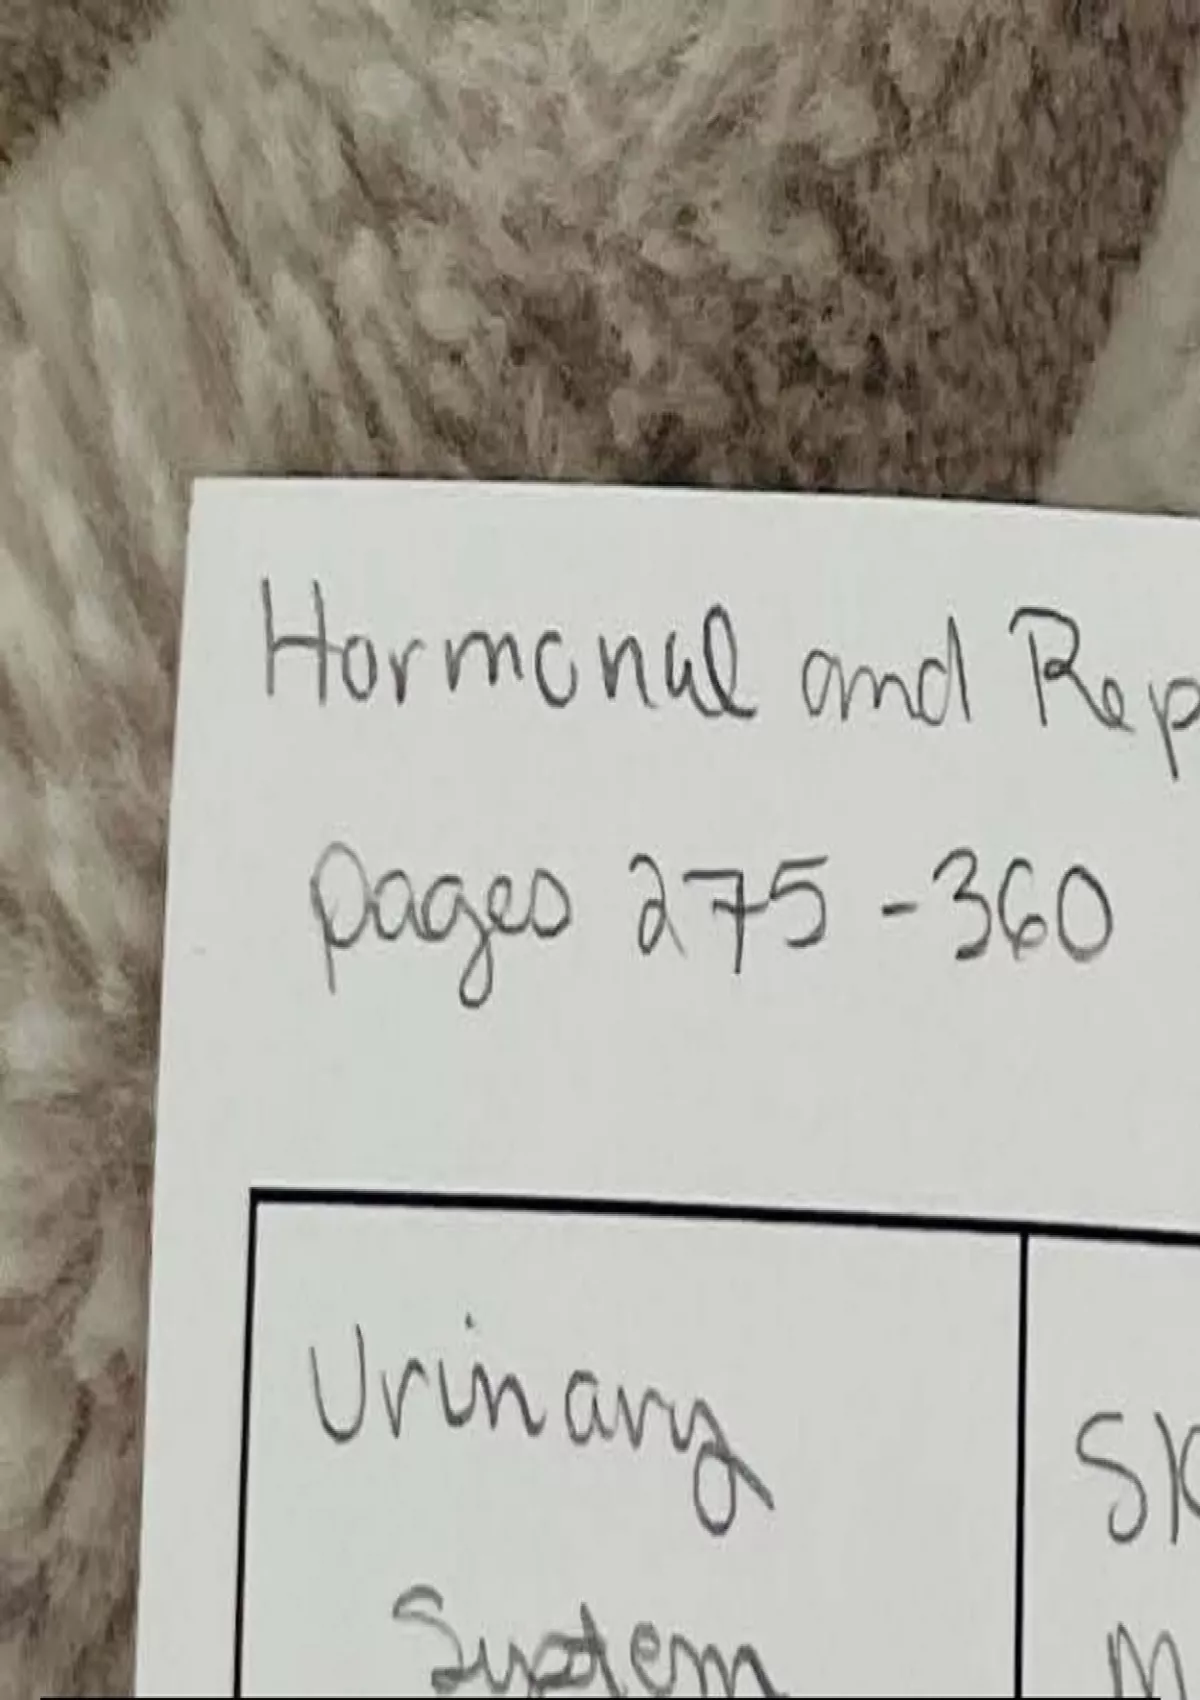 Hormonal and Rep
pages 275 - 360
Urinary
Sk
System
M